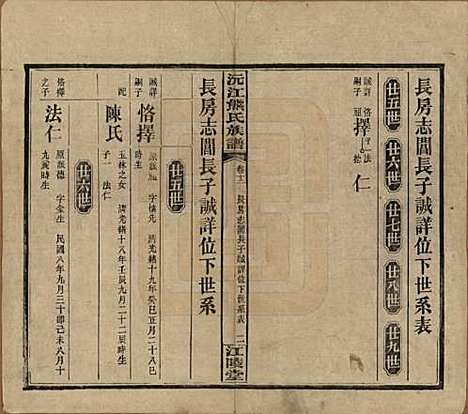 長房志閶長子誠詳位下世系表
廿五世
廿六世
廿七世
廿八世
廿九世
誠詳
嗣子
恪擇
原
法仁
沅江熊氏族譜
卷十二
長房志閶長子誠詳位下世系表
二
江陵堂
長房志閶長子誠詳位下世系
廿五世
誠詳
嗣子
恪擇
原派 字慎先 民光緒十九年癸巳正月二十八巳
時生
配
陳氏
玉林之女 清光緒十八年壬辰九月二十二辰時生
子一 法仁
廿六世
恪擇
之子
法仁
原派德 字金生 民國八年九月三十即己未八月十
九亥時生